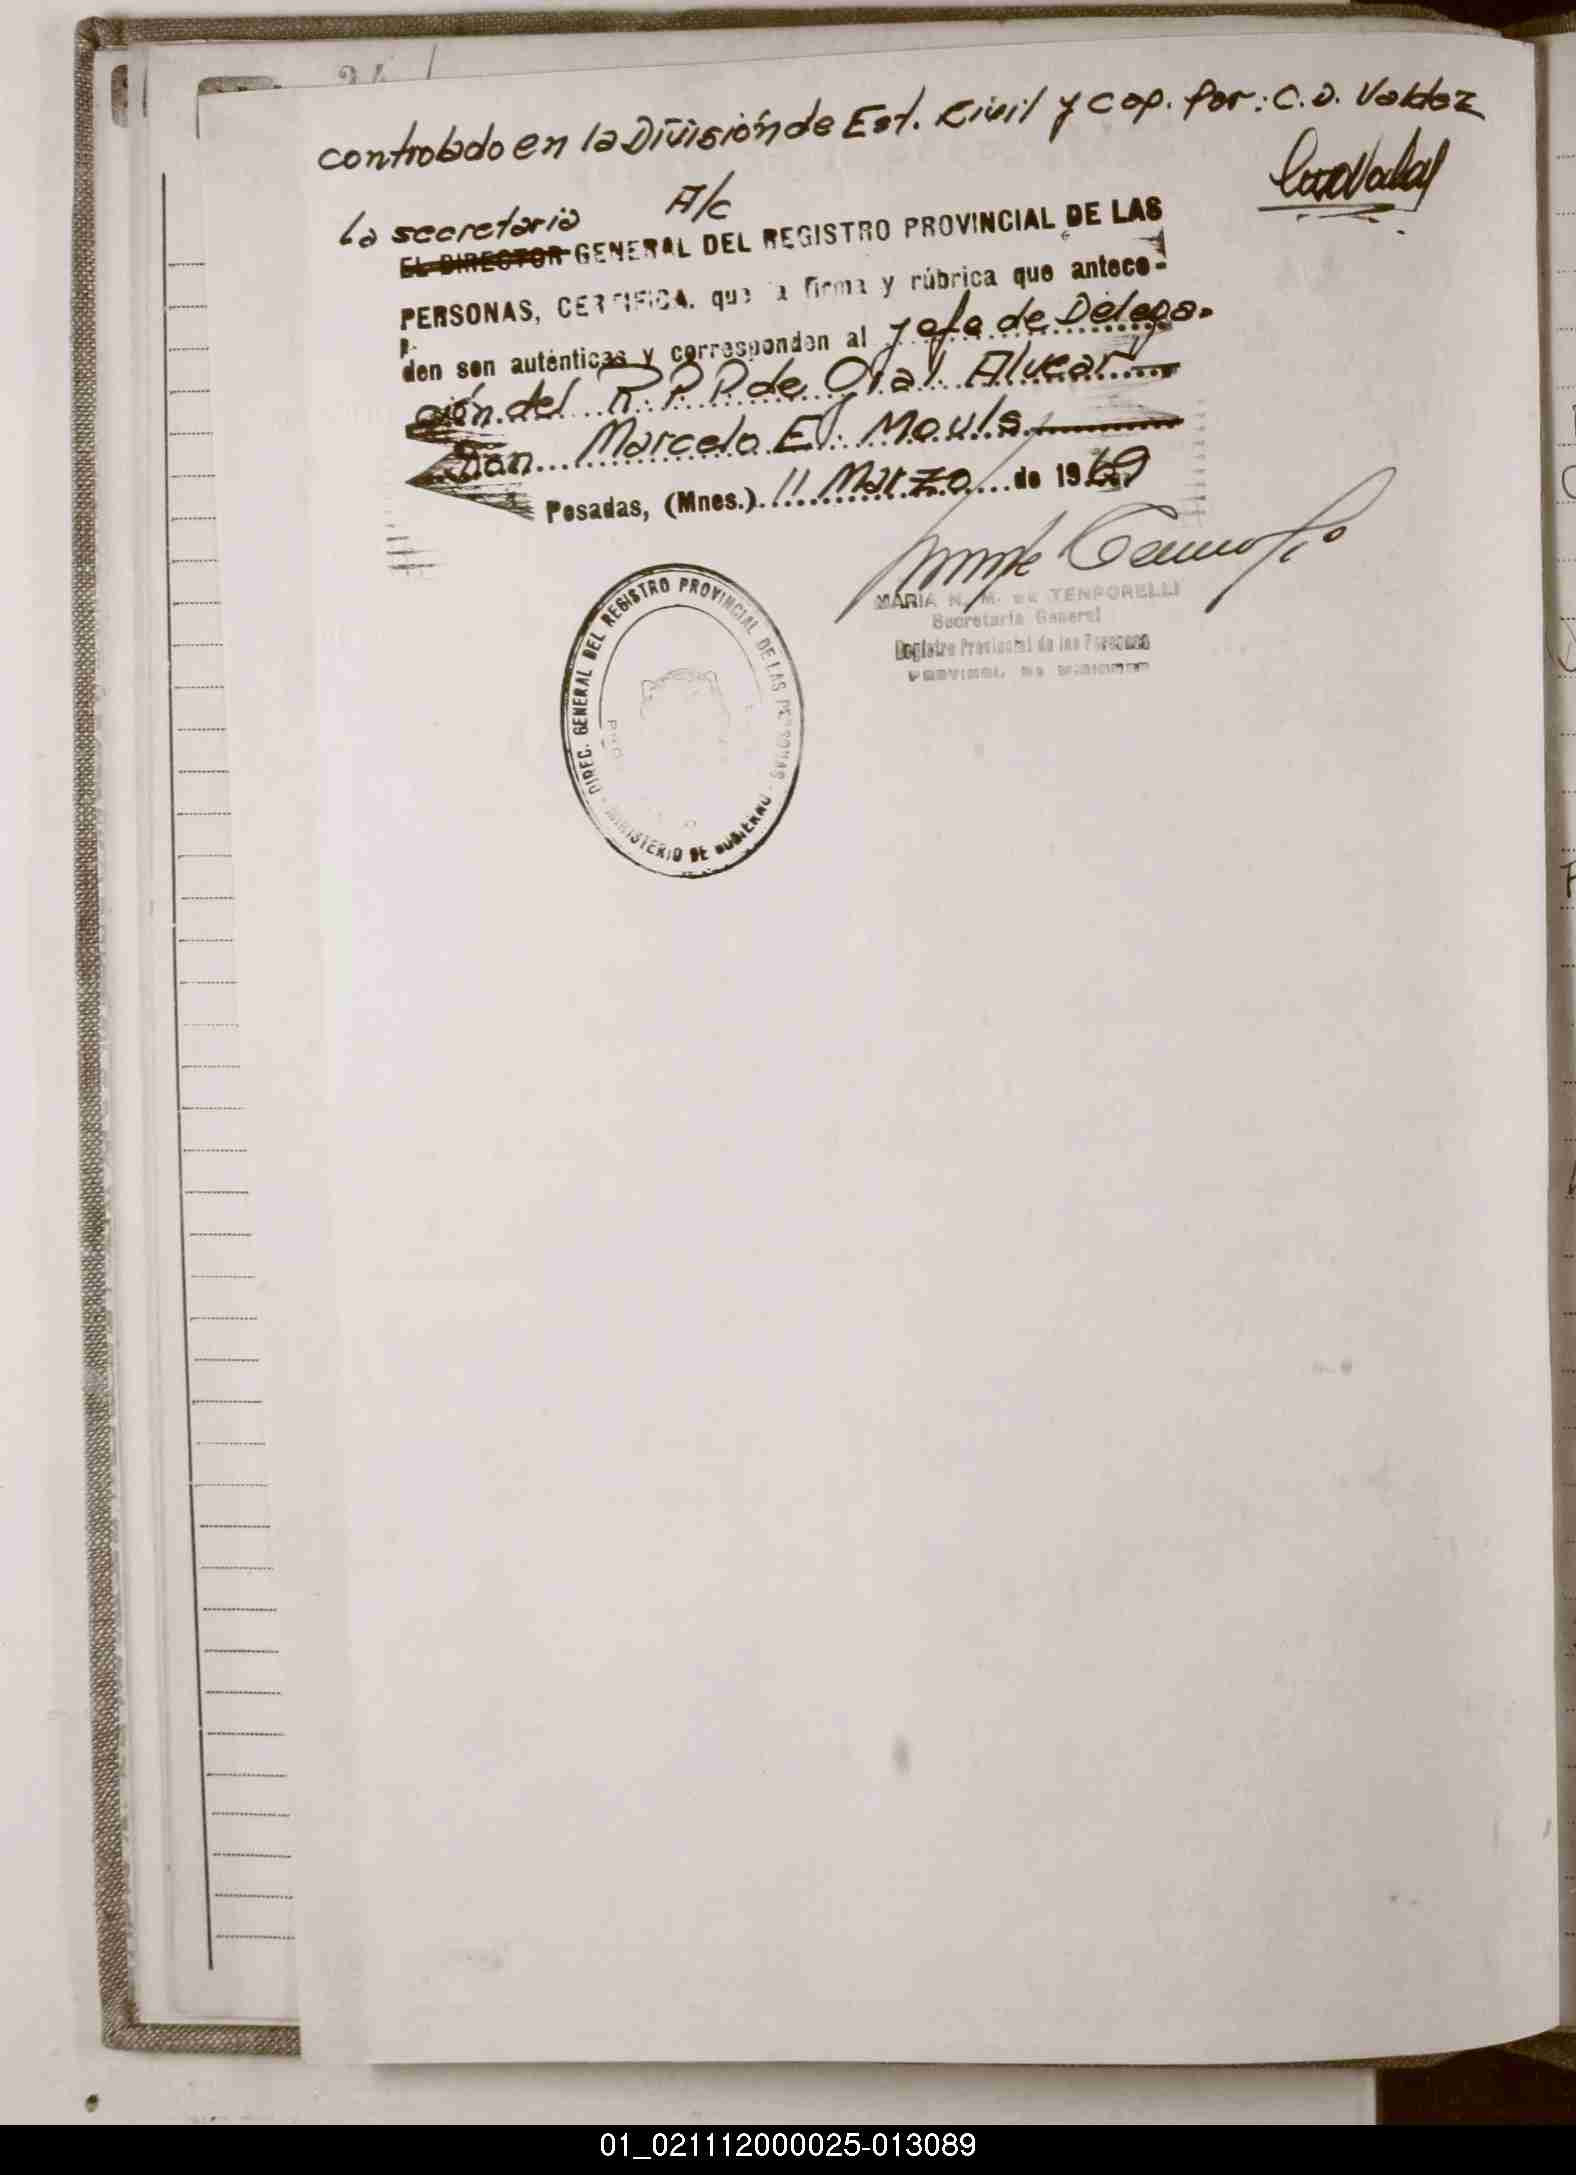 controlado en la División de Est. Civil y Cap. por: C. D. Valdez
La secretaria A/c
EL DIRECTOR GENERAL DEL REGISTRO PROVINCIAL DE LAS
PERSONAS, CERTIFICA. que la firma y rúbrica que antece-
den son auténticas y corresponden al Jefe de Delega-
ción del R.P.P. de Gral. Alvear
Don Marcelo E. Mouls
Posadas, (Mnes.) 11 Marzo de 1969
MARIA N. M. DE TEMPORELLI
Secretaria General
Registro Provincial de las Personas
PROVINCIA DE MISIONES
DIREC. GENERAL DEL REGISTRO PROVINCIAL DE LAS PERSONAS - MINISTERIO DE GOBIERNO -
01_021112000025-013089